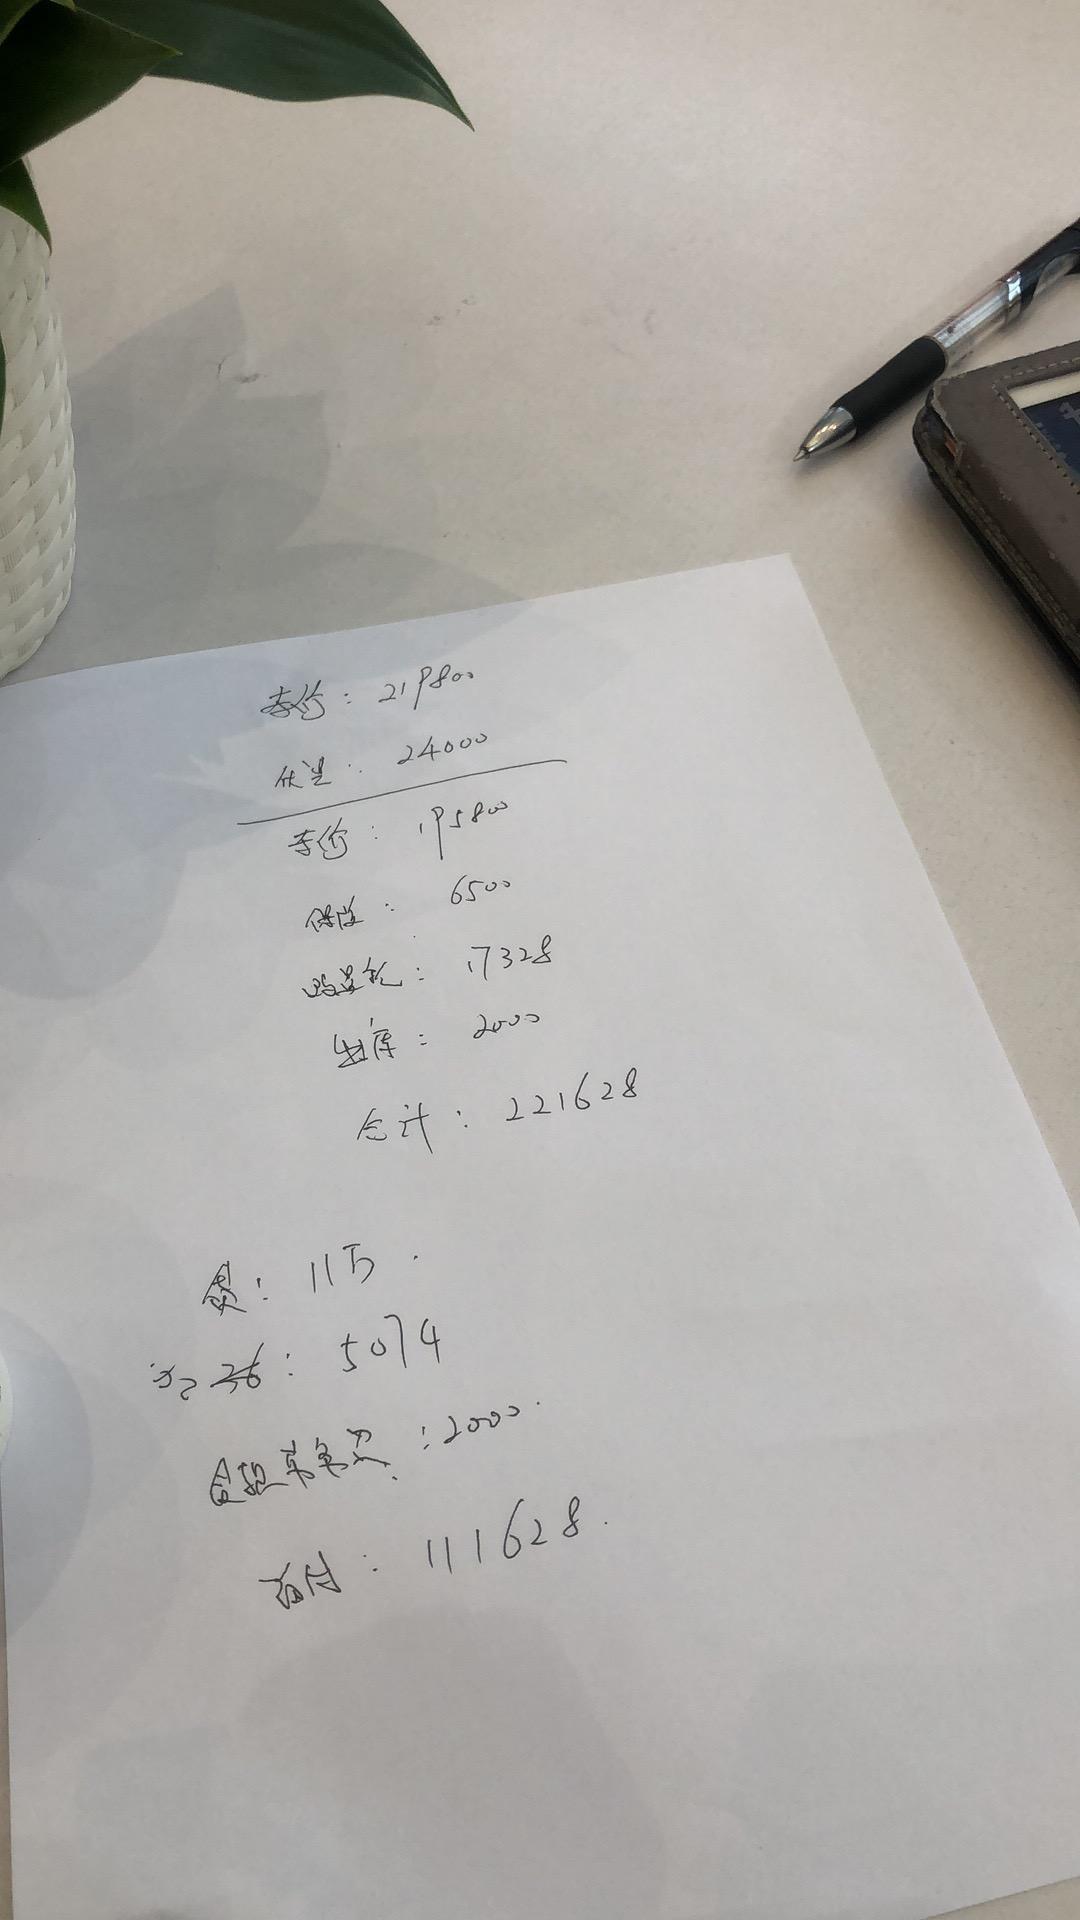 车价：219800
优惠：24000
车价：195800
保险：6500
购置税：17328
出库：2000
合计：221628
贷：11万.
36：5074
：2000.
首付：111628.